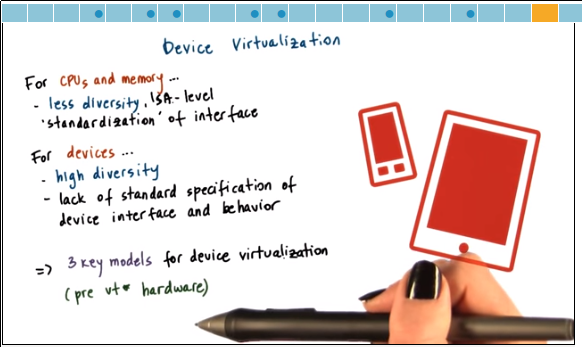 Device Virtualization
For CPUs and memory...
- less diversity, ISA-level
'standardization' of interface
For devices...
- high diversity
- lack of standard specification of
device interface and behavior
=> 3 key models for device virtualization
(pre vt* hardware)